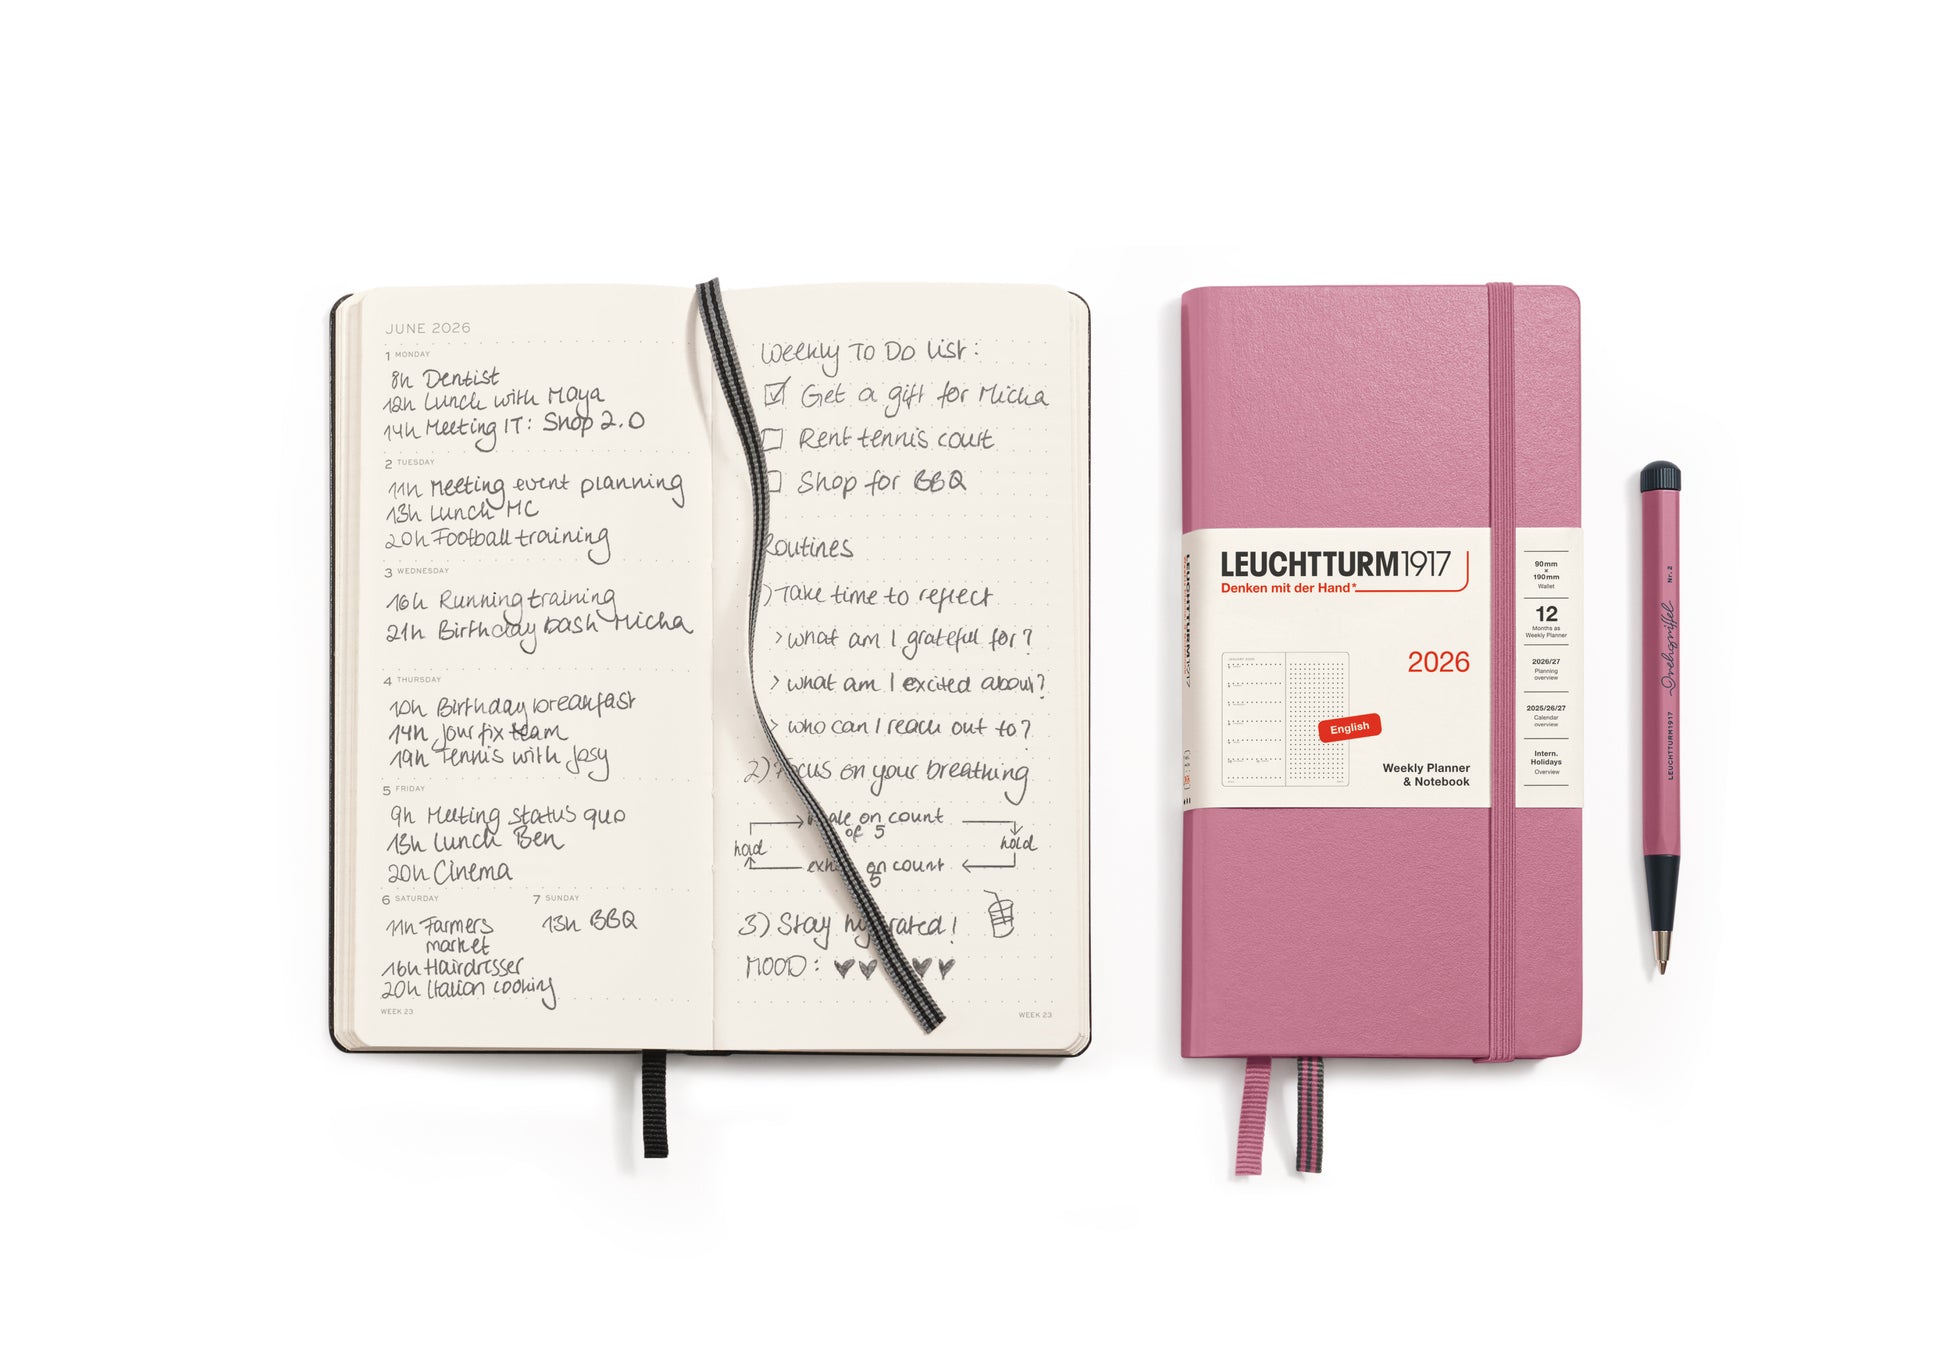 JUNE 2026
1 MONDAY
8h Dentist
12h Lunch with Maya
14h Meeting IT: Shop 2.0
2 TUESDAY
11h Meeting event planning
13h Lunch MC
20h Football training
3 WEDNESDAY
16h Running training
21h Birthday bash Micha
4 THURSDAY
10h Birthday breakfast
14h Jour fix team
19h Tennis with Josy
5 FRIDAY
9h Meeting status quo
13h Lunch Ben
20h Cinema
6 SATURDAY
11h Farmers
market
16h Hairdresser
20h Italian cooking
7 SUNDAY
13h BBQ
WEEK 23
Weekly To Do List:
Get a gift for Micha
Rent tennis court
Shop for BBQ
Routines
) Take time to reflect
> what am I grateful for?
> what am I excited about?
> who can I reach out to?
2) Focus on your breathing
on count
of 5
hold
hold
on count
5
3) Stay hydrated!
MOOD:
WEEK 23
LEUCHTTURM1917
Denken mit der Hand*
2026
English
Weekly Planner
& Notebook
LEUCHTTURM1917
90mm
×
190mm
Wallet
12
Months as
Weekly Planner
2026/27
Planning
overview
2025/26/27
Calendar
overview
Intern.
Holidays
Overview
LEUCHTTURM1917 Drehgriffel Nr. 2